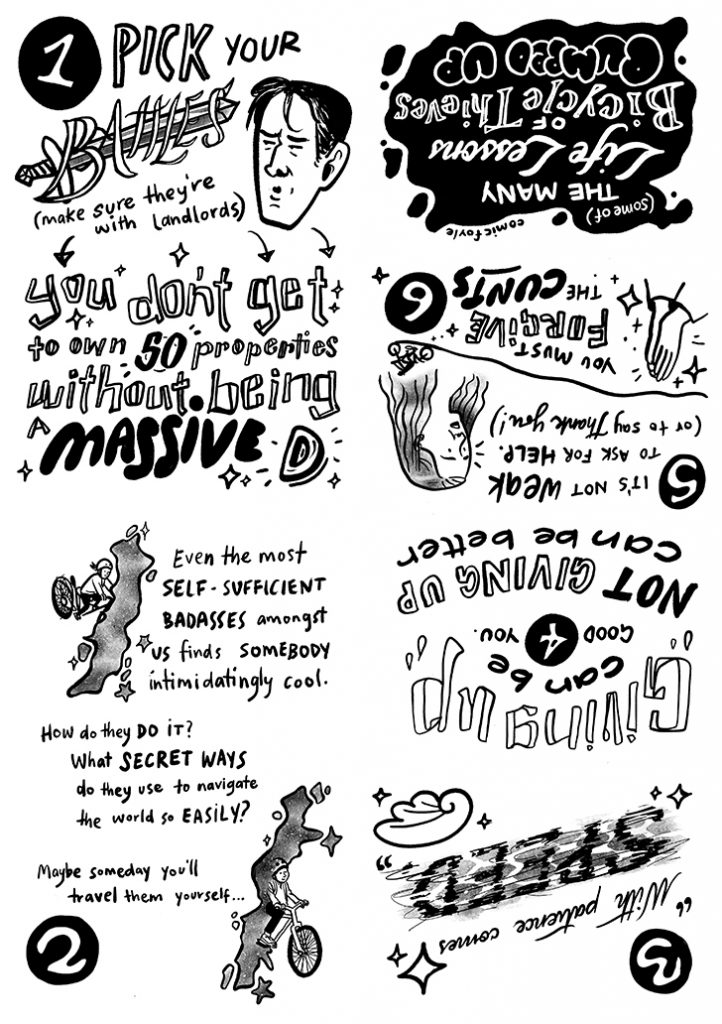 1 PICK YOUR
BATTLES
(make sure they're
with landlords)
you don't get
to own 50 properties
without being
A MASSIVE D
Even the most
SELF-SUFFICIENT
BADASSES amongst
us finds SOMEBODY
intimidatingly cool.
How do they DO IT?
What SECRET WAYS
do they use to navigate
the world so EASILY?
Maybe someday you'll
travel them yourself...
2
comicfoyle
(some of)
THE MANY
Life Lessons
OF
BICYCLE THIEVES
PUMPED UP
3
"With patience comes
SPEED"
Giving up
can be
GOOD 4 YOU.
NOT GIVING UP
can be better
5 IT'S NOT WEAK
TO ASK FOR HELP.
(or to say Thank you!)
YOU MUST
FORGIVE
THE CUNTS
6